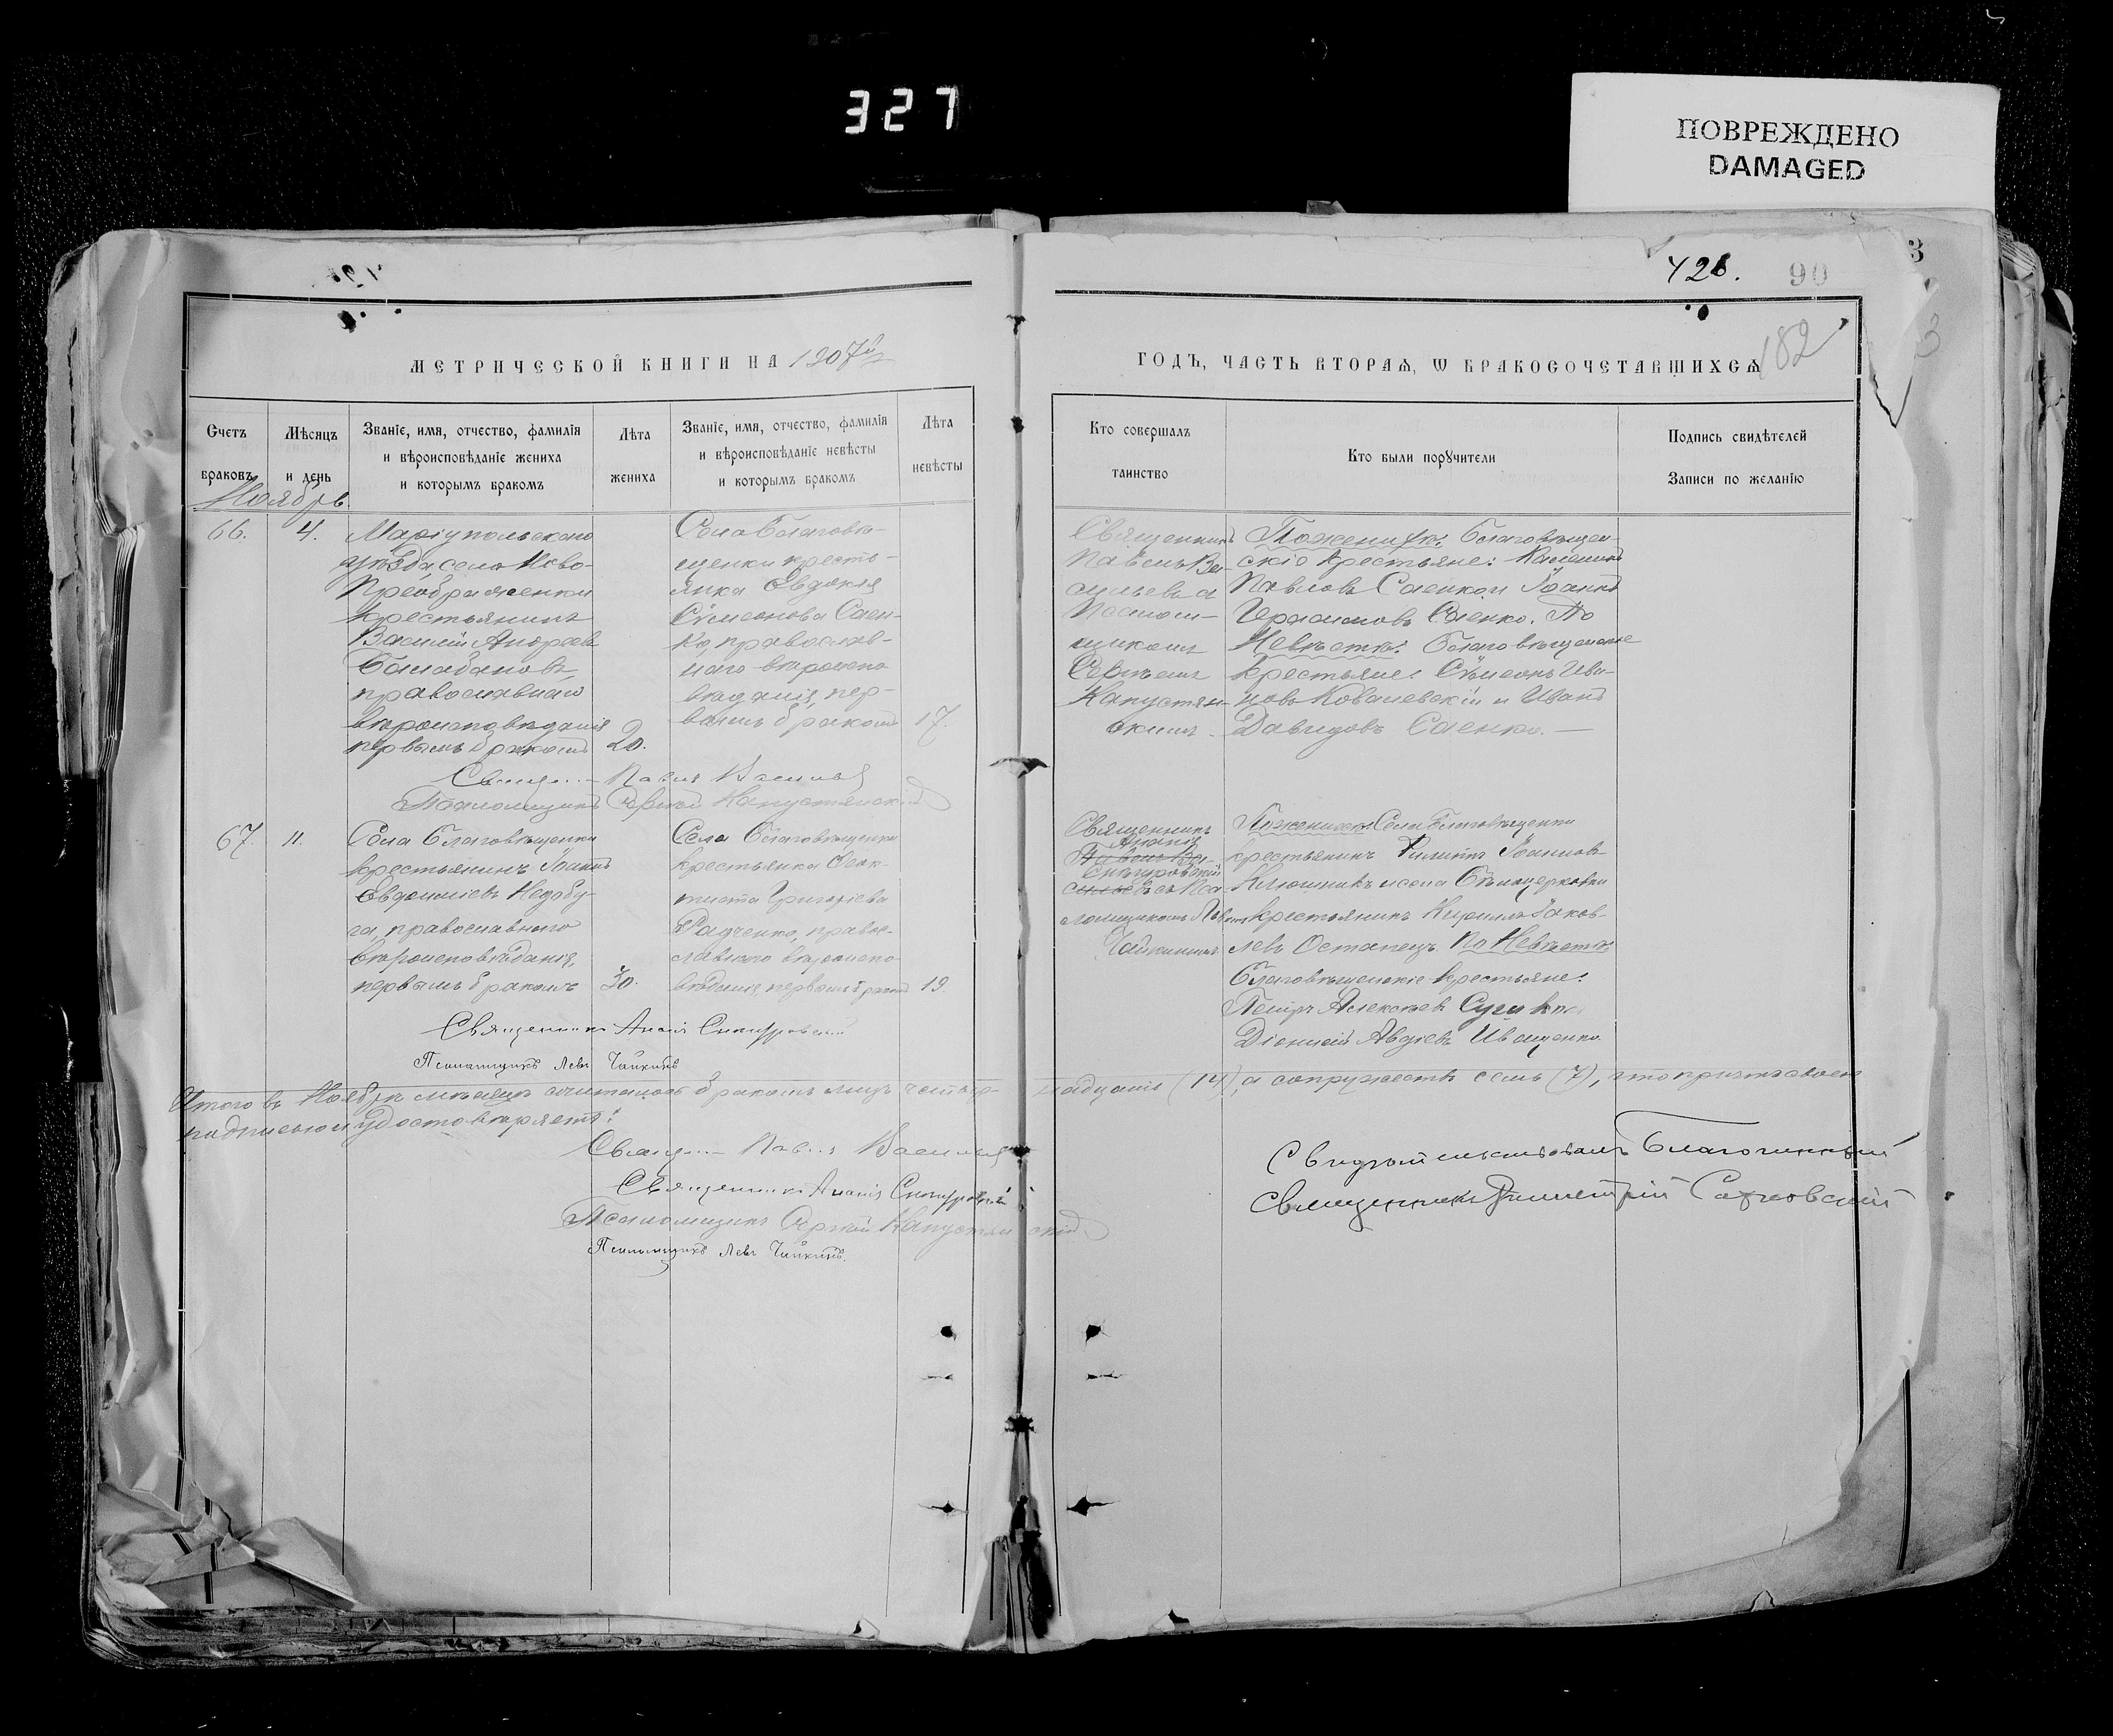 327
ПОВРЕЖДЕНО
DAMAGED
426.
90
3
182
3
МЕТРИЧЕСКОЙ КНИГИ НА 1907й
ГОДЪ, ЧАСТЬ ВТОРАѦ, Ѡ БРАКОСОЧЕТАВШИХСѦ
Счетъ
браковъ
Мѣсяцъ
и день
Званіе, имя, отчество, фамилія
и вѣроисповѣданіе жениха
и которымъ бракомъ
Лѣта
жениха
Званіе, имя, отчество, фамилія
и вѣроисповѣданіе невѣсты
и которымъ бракомъ
Лѣта
невѣсты
Кто совершалъ
таинство
Кто были порꙋчители
Подпись свидѣтелей
Записи по желанію
Ноябрь.
66.
4.
Маріупольскаго
уѣзда, села Ново-
Преображенки
крестьянинъ
Василій Андреевъ
Балабановъ,
православнаго
вѣроисповѣданія
первымъ бракомъ
20.
Села Благовѣ-
щенки кресть-
янка Евдокія
Сѵмеонова Саен-
ко, православ-
наго вѣроиспо
вѣданія, пер-
вымъ бракомъ
17.
Священникъ
Павелъ Ва-
сильевъ съ
Псалом-
щикомъ
Сергѣемъ
Капустян-
скимъ.
По женихѣ: Благовѣщен-
скіе крестьяне:
Павловъ Саенко и Іоаннъ
Герасимовъ Саенко. По
Невѣстѣ: Благовѣщенскіе
крестьяне: Сѵмеонъ Ива-
новъ Ковалевскій и Иванъ
Давидовъ Саенко. —
Священ. Павелъ Васильевъ
Псаломщикъ Сергѣй Капустянскій
67.
11.
Села Благовѣщенки
крестьянинъ Іоаннъ
Евдокимовъ Недобу-
га, православнаго
вѣроисповѣданія,
первымъ бракомъ
30.
Села Благовѣщенки
крестьянка Ѳеок-
тиста Григоріева
Радченко, право-
славнаго вѣроиспо
вѣданія, первымъ бракомъ
19.
Священникъ
Ананія
Павелъ Ва-
Снѣгуровскій
сильевъ съ Пса-
ломщикомъ Львомъ
Чайкинымъ
По женихѣ: Села Благовѣщенки
крестьянинъ Филиппъ Іоанновъ
и села Бѣлоцерковки
крестьянинъ Кириллъ Іаков-
левъ Остапецъ. По Невѣстѣ
Благовѣщенскіе крестьяне:
Петръ Алексѣевъ
Діонисій Авдіевъ Иващенко.
Священникъ Ананія Снѣгуровскій
Псаломщикъ Левъ Чайкинъ
Итого въ Ноябрѣ мѣсяцѣ сочеталось бракомъ лицъ четыр-
надцать (14), а супружествъ семь (7), что приложеніемъ
подписью и удостовѣряетъ:
Священ. Павелъ Васильевъ
Священникъ Ананія Снѣгуровскій
Псаломщикъ Сергѣй Капустянскій
Псаломщикъ Левъ Чайкинъ.
Свидѣтельствовалъ Благочинный
Священникъ Димитрій